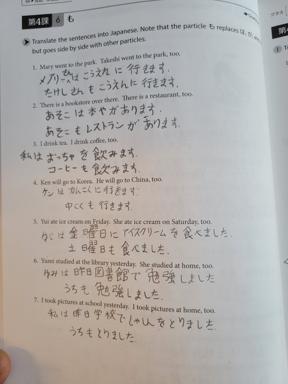 第4課 6 も
Translate the sentences into Japanese. Note that the particle も replaces は, が, and
but goes side by side with other particles.
1. Mary went to the park. Takeshi went to the park, too.
メアリーさんはこうえんに行きます。
たけしさんもこうえんに行きます。
2. There is a bookstore over there. There is a restaurant, too.
あそこは本やがあります。
あそこもレストランがあります。
3. I drink tea. I drink coffee, too.
私はおっちゃを飲みます。
コーヒーも飲みます。
4. Ken will go to Korea. He will go to China, too.
ケンはかんこくに行きます。
中くくも行きます。
5. Yui ate ice cream on Friday. She ate ice cream on Saturday, too.
金曜日にアイスクリームを食べました。
土曜日も食べました。
6. Yumi studied at the library yesterday. She studied at home, too.
ゆみは昨日図書館で勉強しました
うちも勉強しました。
7. I took pictures at school yesterday. I took pictures at home, too.
私は昨日学校でしゃしんをとりました
うちもとりました